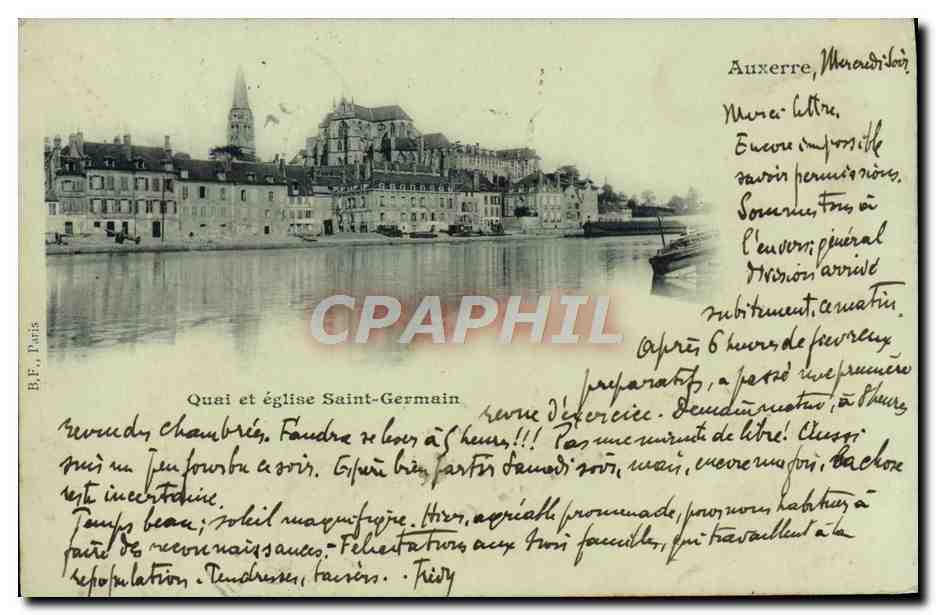 Auxerre, Mercredi soir
Merci lettre.
Encore impossible
savoir permissions.
Sommes tous à
l'envers; général
division arrivé
subitement, ce matin.
Après 6 heures de fiévreux
préparatifs, a passé une première
revue d'exercice. Demain matin, à 8 heures
revue des chambrés. Faudra se lever à 5 heures!!! Pas une minute de libre! Aussi
suis un peu fourbu ce soir. Espère bien partir Samedi soir, mais, encore une fois, la chose
reste incertaine.
Temps beau; soleil magnifique. Hier, agréable promenade, pour nous habituer à
faire des reconnaissances,- Félicitations aux trois familles, qui travaillent à la
repopulation. Tendresses, baisers.
Quai et église Saint-Germain
B.F., Paris
CPAPHIL